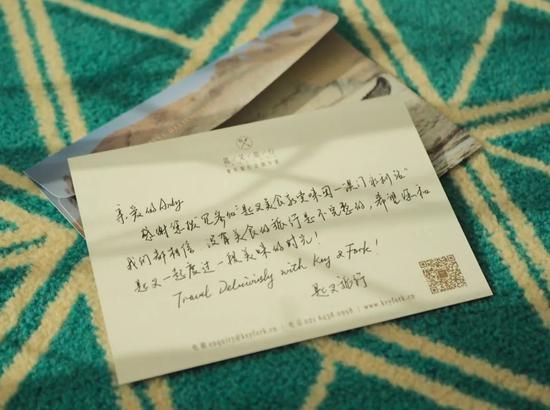 匙叉旅行
亲爱的Andy
感谢您拨冗参加"匙叉美食家赏味团—澳门永利站"
我们都相信，没有美食的旅行是不完整的，希望您和
匙叉一起度过一段美味的时光！
Travel Deliciously with Key & Fork!
匙叉旅行
电邮 enquiry@keyfork.cn | 电话 021 6438 0958 | www.keyfork.cn